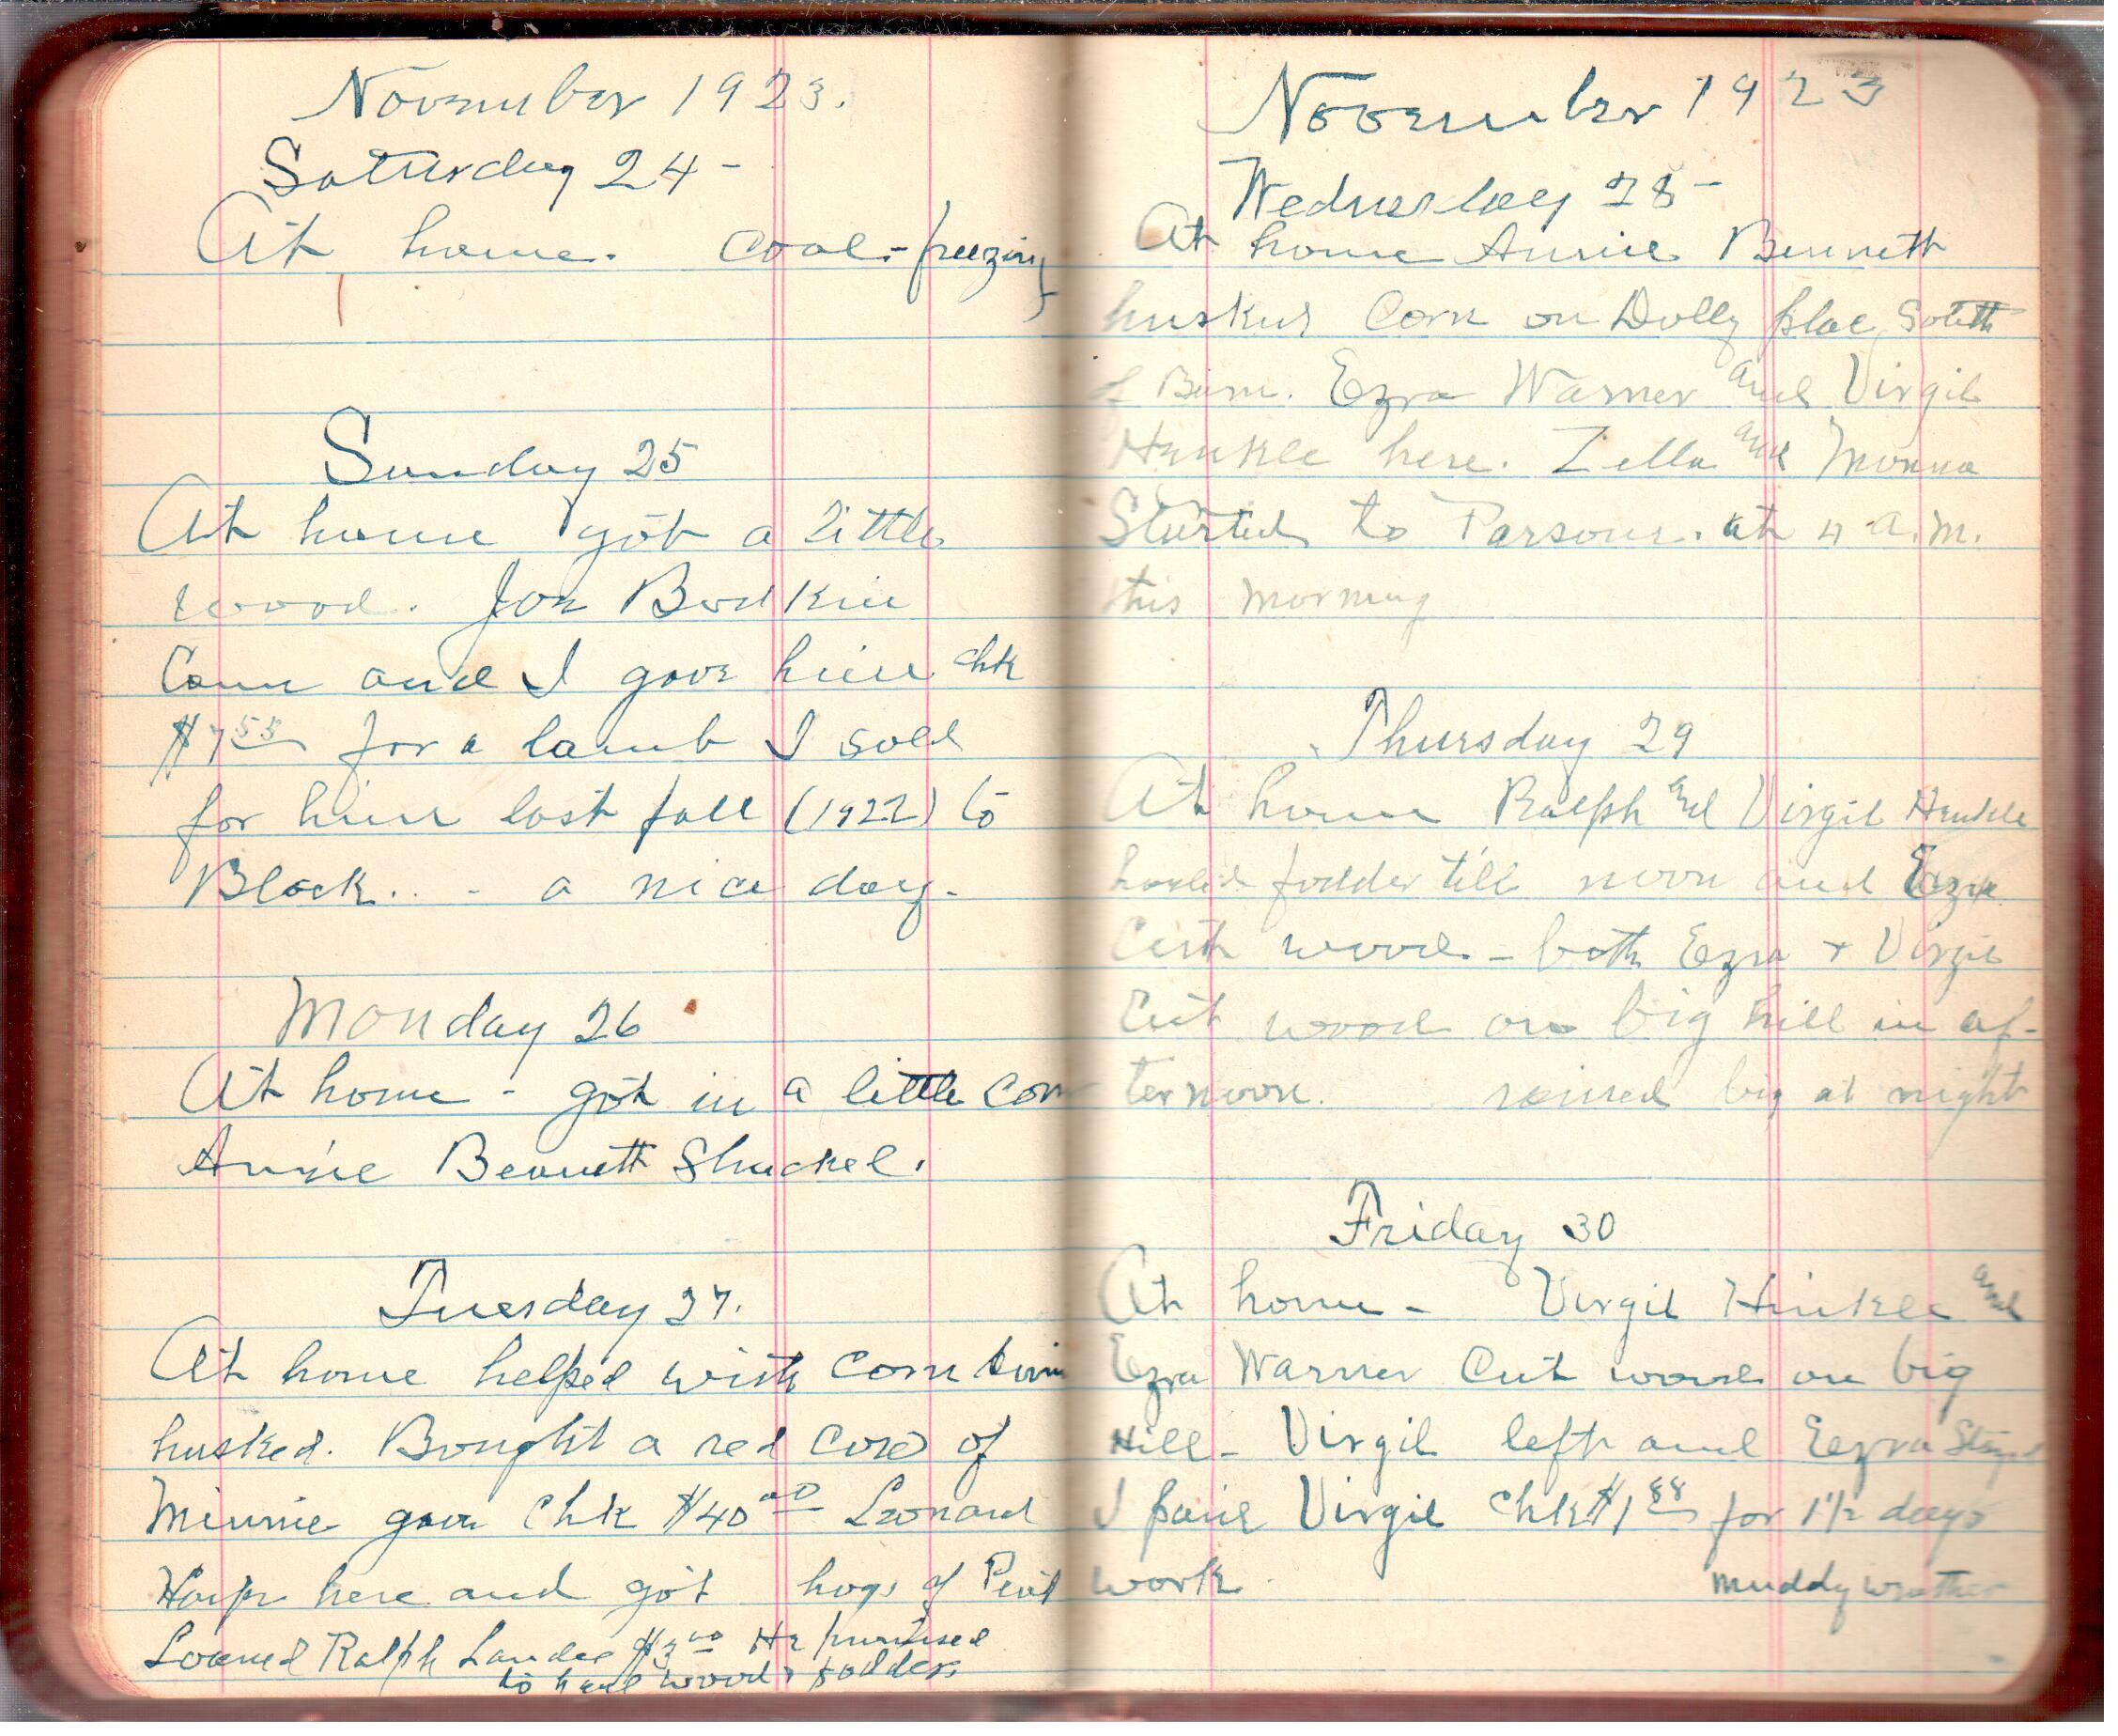 November 1923.
Saturday 24-
At home. Cool-freezing
Sunday 25
At home got a little
wood. Joe Bodkin
Came and I gave him chk
$7 53 for a lamb I sold
for him last fall (1922) to
Block. . - a nice day-
Monday 26
At home - got in a little corn
Annie Bennett Shucked.
Tuesday 27.
At home helped with corn
husked. Bought a red cow of
Minnie gave chk $40 00 Leonard
Harper here and got hogs of
Loaned Ralph Landes $3 00 He promised
to haul wood & fodder
November 1923
Wednesday 28-
At home Annie Bennett
huskus Corn on Dolly plac South
of Barn. Ezra Warner and Virgil
Hinkle here. Zella and Monna
Started to Parsons. at 4 a.m.
this morning
Thursday 29
At home Ralph and Virgil Hinkle
hauled fodder till noon and Ezra
Cut wood - both Ezra + Virgil
Cut wood on big hill in af-
ternoon. rained big at night
Friday 30
At home - Virgil Hinkle and
Ezra Warner Cut wood on big
Hill - Virgil left and Ezra Stayed
I paid Virgil Chk $1 88 for 1 1/2 days
work. muddy weather